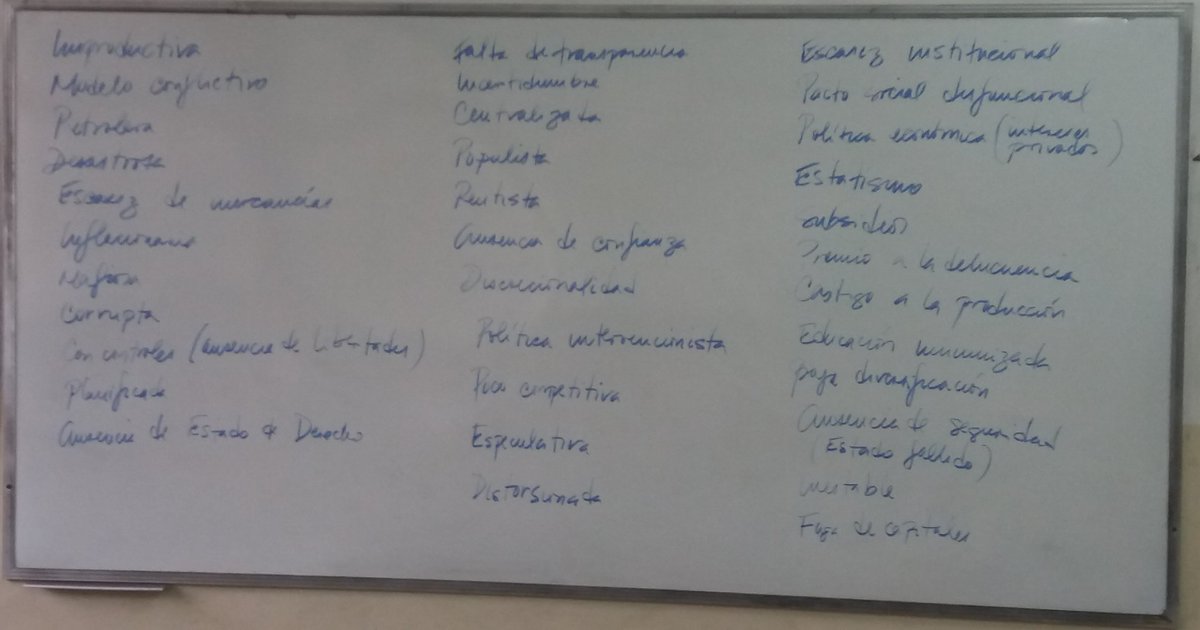 Improductiva
Modelo conflictivo
Petrolera
Desastrosa
Escasez de mercancías
Inflacionaria
Mafiosa
Corrupta
Con controles (ausencia de libertades)
Planificada
Ausencia de Estado de Derecho
Falta de transparencia
Incertidumbre
Centralizada
Populista
Rentista
Ausencia de confianza
Discrecionalidad
Política intervencionista
Poco competitiva
Especulativa
Distorsionada
Escasez institucional
Pacto social disfuncional
Política económica (intereses
privados)
Estatismo
subsidios
Premio a la delincuencia
Castigo a la producción
Educación
baja diversificación
Ausencia de seguridad
(Estado fallido)
Inestable
Fuga de capitales